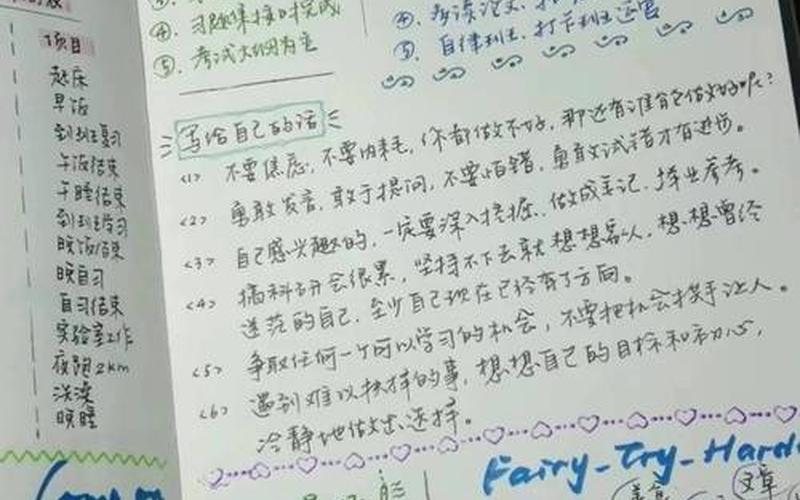 项目
起床
早饭
到班复习
午饭结束
午睡结束
到班学习
晚饭结束
晚自习
自习结束
实验室工作
夜跑2km
洗漱
晚睡
④. 习题集按时完成
⑤. 考试大纲为主
④. 多读论文,
⑤. 自律到底, 打卡到运营
写给自己的话
<1> 不要焦虑, 不要内耗, 你都做不好, 那还有谁能做好呢?
<2> 勇敢发言, 敢于提问, 不要怕错, 勇敢试错才有进步。
<3> 自己感兴趣的, 一定要深入挖掘, 做成笔记, 择业参考。
<4> 搞科研会很累, 坚持不下去就想想家人, 想想曾经
迷茫的自己, 至少自己现在已经有了方向。
<5> 争取任何一个可以学习的机会, 不要把机会拱手让人。
<6> 遇到难以抉择的事, 想想自己的目标和初心,
冷静地做出选择。
Fairy-Try-Hard
文章